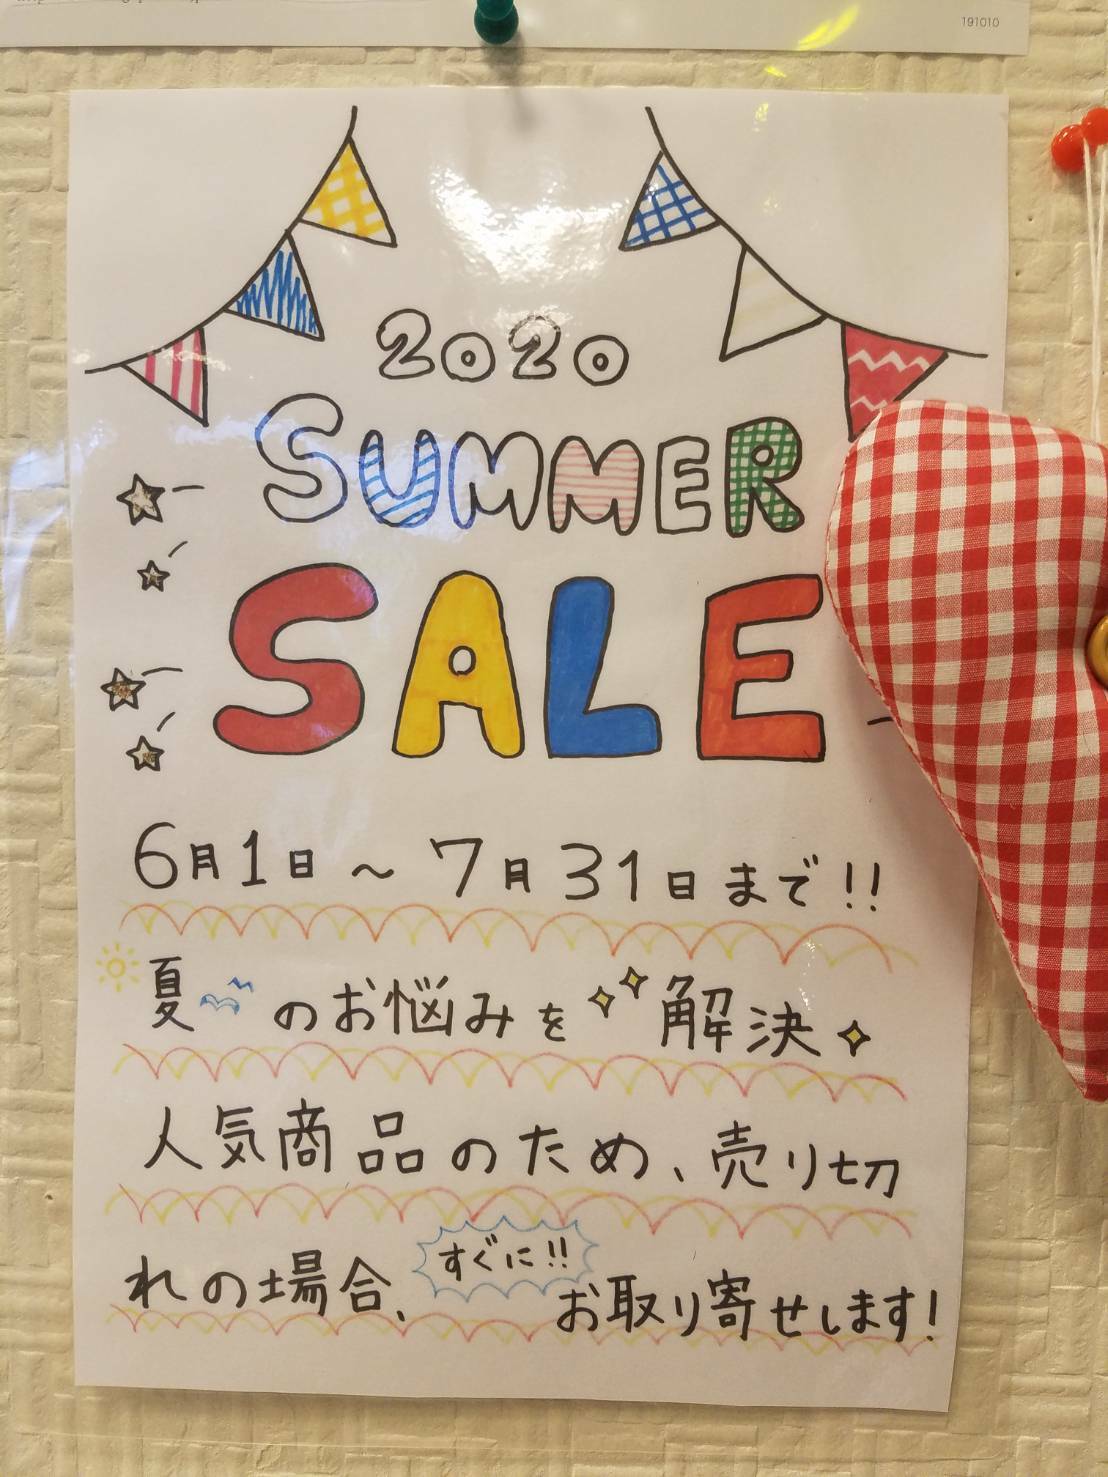 191010
2020
SUMMER
SALE
6月1日～7月31日まで!!
夏のお悩みを解決
人気商品のため、売り切
れの場合、すぐに!!お取り寄せします!